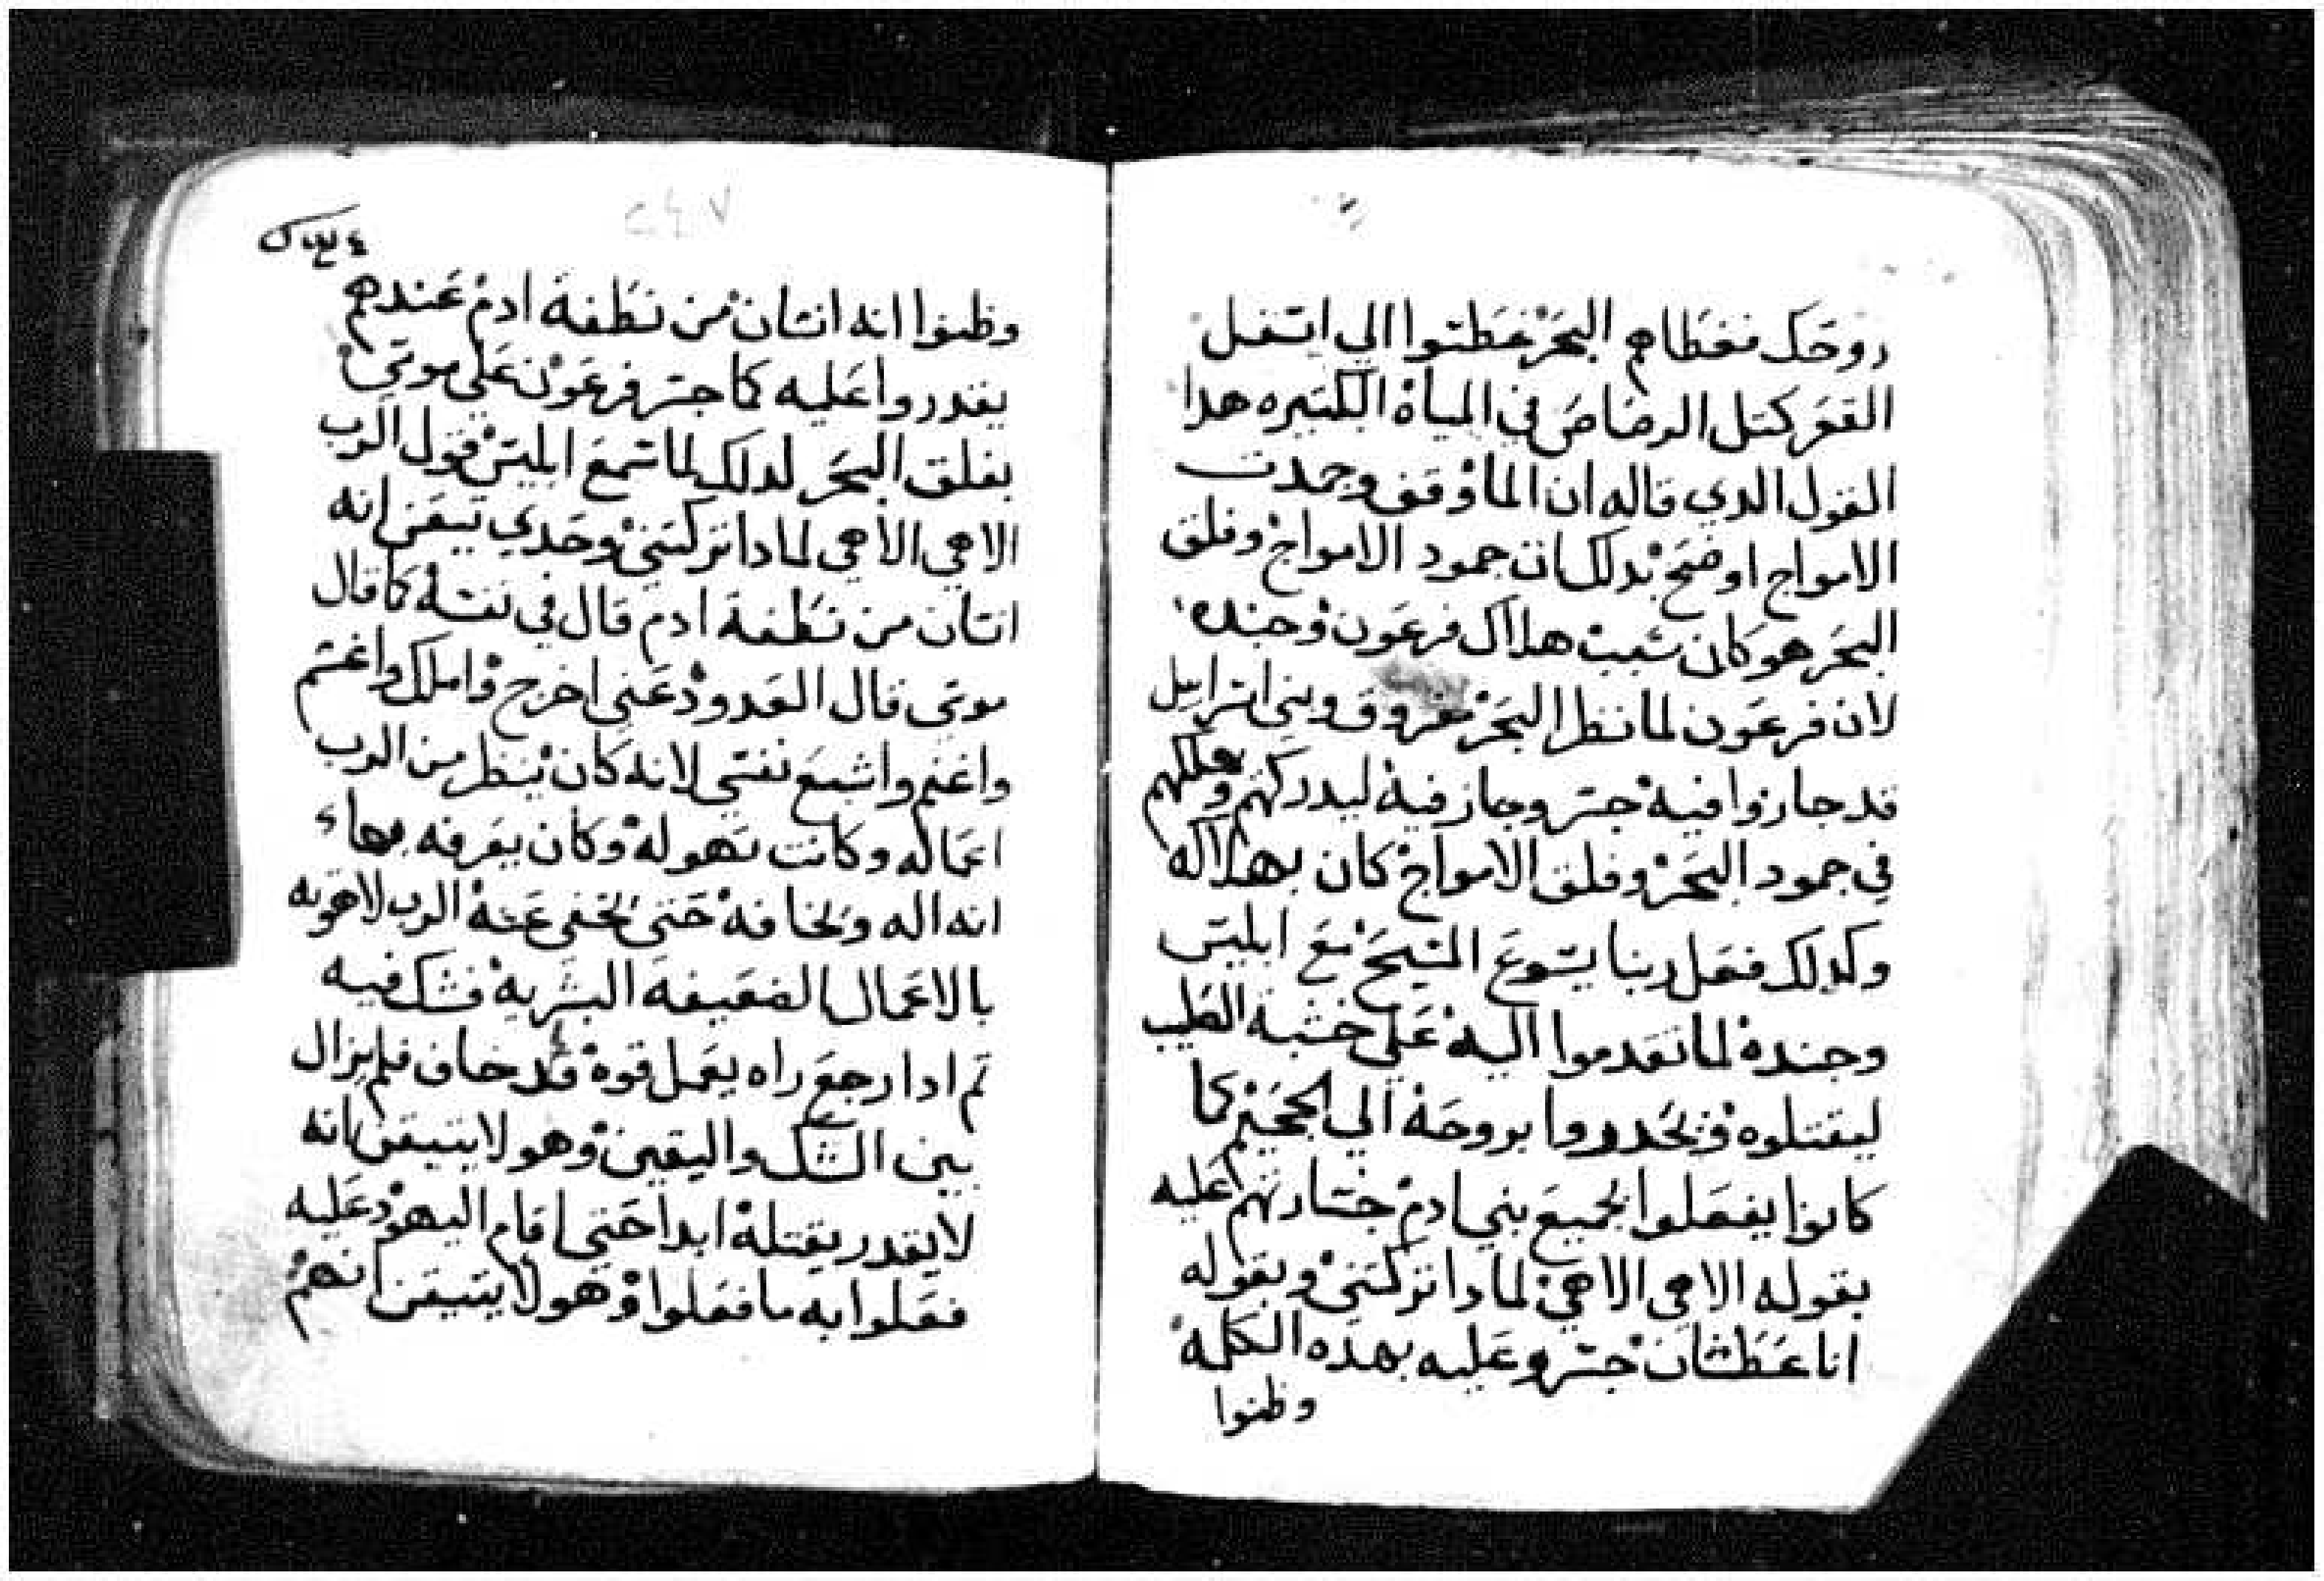 روحك فغطاهم البحر غطتوا الي اتفل
القعر كتل الرصاص في المياة الكتيره هدا
القول الدي قاله ان الما وقف وجمدت
الامواج اوضح بدلك ان جمود الامواج وفلق
البحر هو كان سبب هلاك فرعون وجنده
لان فرعون لما نظر البحر مفروق وبني اسراييل
قد جازوا فيه جسر وجاز فيه ليدركهم ويهلكهم
في جمود البحر وفلق الامواج كان بهلاكه
وكدلك فعل ربنا يسوع المسيح مع ابليس
وجنده لما تقدموا اليه علي خشبة الصليب
ليقتلوه ويحدروا بروحه الي الجحيم كما
كانوا يفعلوا بجميع بني ادم جسارتهم عليه
بقوله الاهي الاهي لمادا تركتني وبقوله
انا عطشان جسروا عليه بهده الكلمة
وظنوا
٢٤٧
وظنوا انه انسان من نطفة ادم عندهم
يقدروا عليه كما جسر فرعون علي موسي
بفلق البحر لدلك لما سمع ابليس قول الرب
الاهي الاهي لمادا تركتني وحدي تيقن انه
انسان من نطفة ادم قال في نفسه كما قال
موسي قال العدو دعني اخرج واملك واغتم
واغنم واشبع نفسي لانه كان ينظر من الرب
اعماله وكانت تهوله وكان يعرفه بهاء
انه اله ويخافه حتي يخفي عنه الرب لاهوته
بالاعمال الضعيفه البشريه فشك فيه
تم ادا رجع راه يعمل قوة قد خاف فلم يزال
بين الشك واليقين وهو لا يتيقن انه
لا يقدر يقتله ابدا حتي اقام اليهود عليه
فعلوا به ما فعلوا وهو لا يتيقن انهم